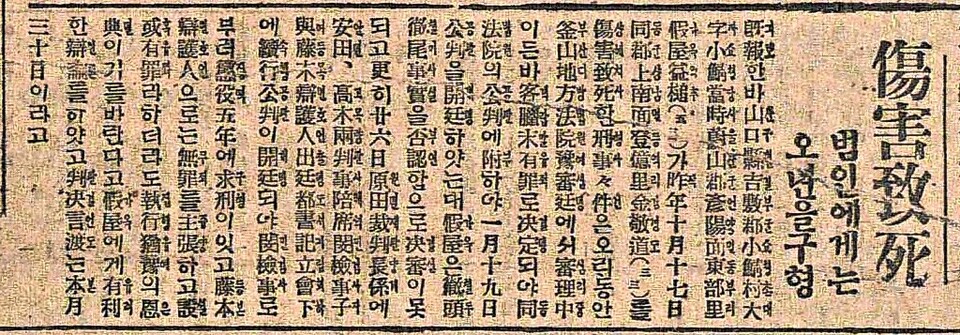 傷害致死
범인에게는
오년을구형
旣報한바山口縣吉敷郡小鯖村大
字小鯖當時蔚山郡彥陽面東部里
假屋盆槌(五三)가昨年十月十七日
同郡上南面登億里金敬道(三三)를
傷害致死한刑事々件은오린동안
釜山地方法院豫審廷에서審理中
이든바客臘末有罪로決定되야同
法院의公判에附하야一月十九日
公判을開廷하얏는대假屋은徹頭
徹尾事實을否認함으로決審이못
되고更히廿六日原田裁判長係에
安田、高木兩判事陪席関檢事子
與藤本辯護人出廷都書記立會下
에續行公判이開廷되야関檢事로
부터懲役五年에求刑이잇고藤本
辯護人으로는無罪를主張하고設
或有罪라하더라도執行猶豫의恩
典이기를바란다고假屋에게有利
한辯論를하얏고判決言渡는本月
三十日이라고